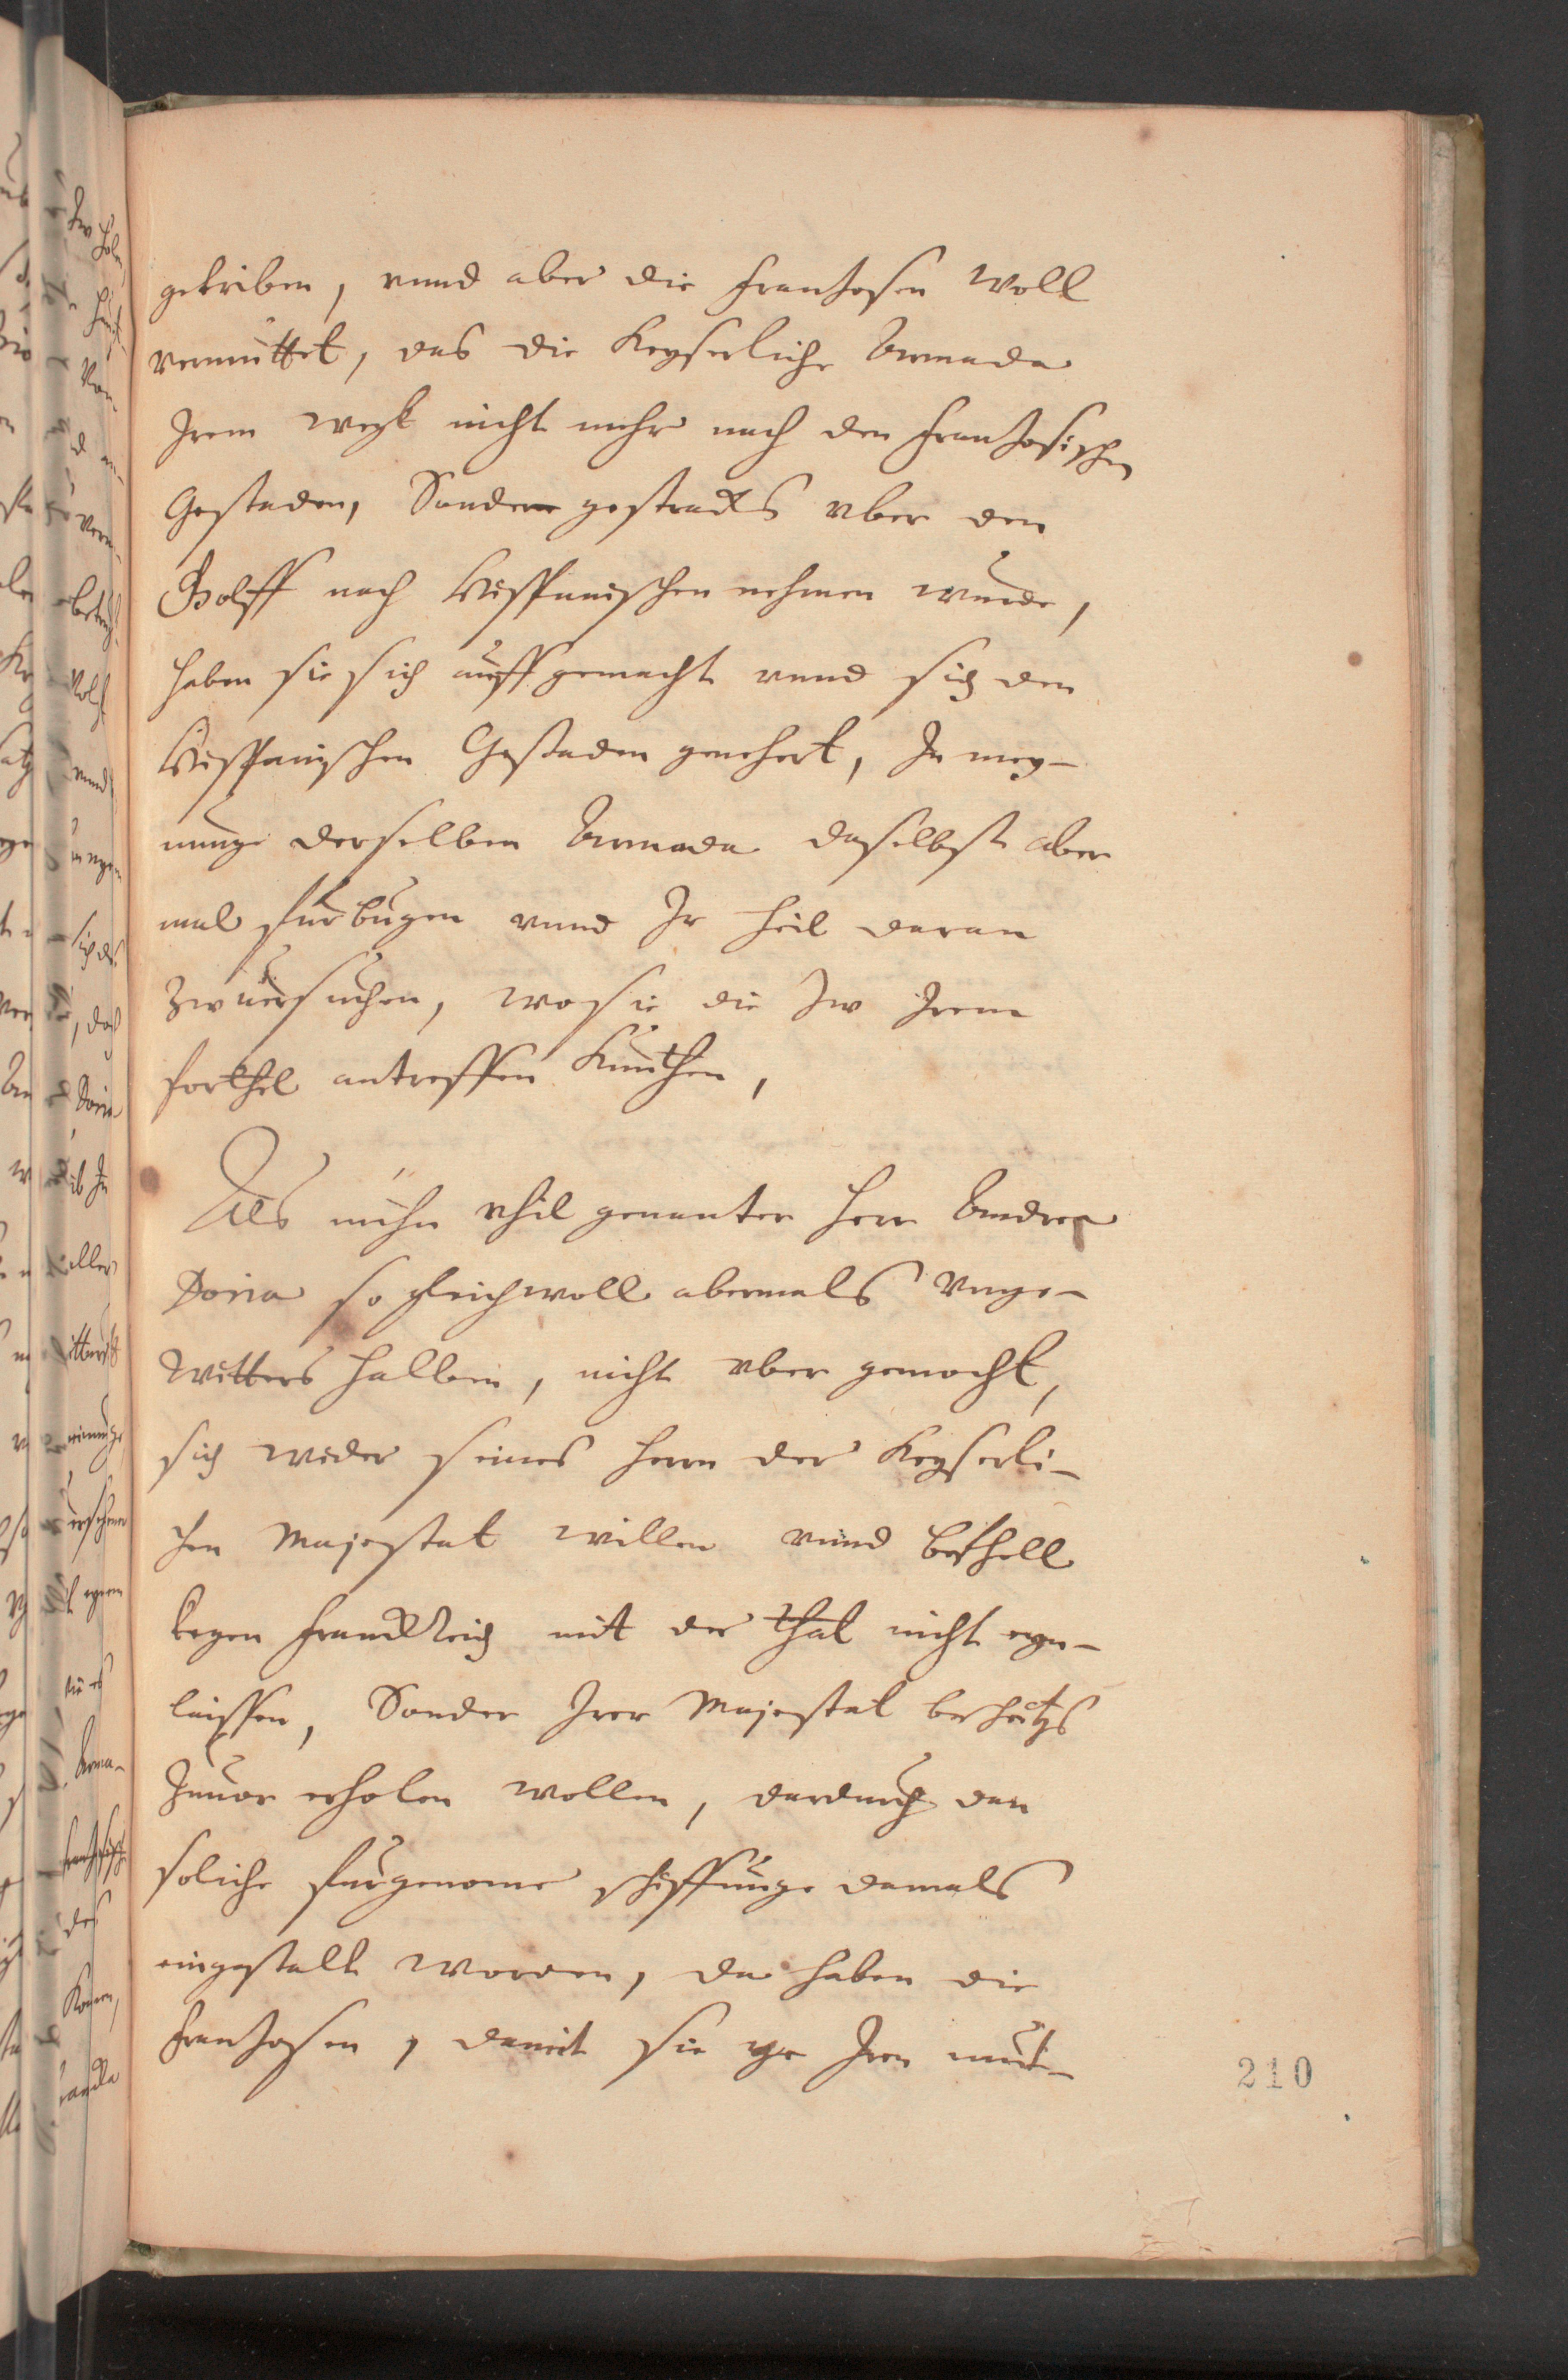 getriben, vnnd aber die frantzosen woll
vermuttet, das die Keyserliche Armada
Iren wegk nicht mehr nach den frantzosischen
Gestaden, Sondern gestracks vber den
Golff nach Hispanischen nehmen wurde,
haben sie sich auffgemacht vnnd sich den
Hispanischen Gestaden genehert, In mey-
nunge derselben Armada daselbst aber
mal furbugen vnnd Ir heil daran
zuuersuchen, wo sie die zw Irem
forthel antreffen kunthen,
Als nuhn vhil genanter Herr Andrea
Doria so gleichwoll abermals vnge-
witters halben, nicht vber gemocht,
sich wider seines herrn der Keyserli-
chen Majestat willen vnnd befhell
kegen Franckreich mit der that nicht eyn-
laissen, Sonder Irer Majestat bescheitzs
zuuor erholen wollen, dardurch dan
soliche furgenome schiffunge damals
eingestalt worden, da haben die
frantzosen, damit sie ye Iren mut-
210